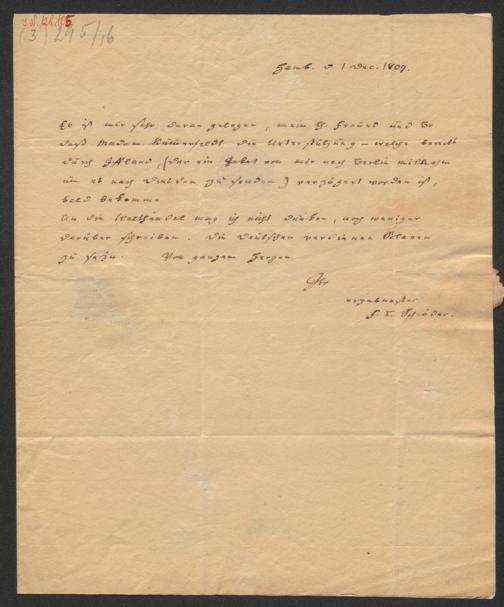 (3) 295/16
Hamb. d 1 Dec. 1809.
Es ist mir sehr daran gelegen, mein th. Freund und Br
daß Madam Kummerfeldt die Unterstützung – welche bereits
durch Iffland, (der ein Paket von mir nach Berlin mitnahm
um es nach Dresden zu senden) verzögert worden ist,
bald bekomme
An die Welthändel mag ich nicht denken, noch weniger
darüber schreiben. Die Deutschen verdienen Sklaven
zu seyn. Von ganzem Herzen
Ihr
ergebenster
F. L. Schröder.